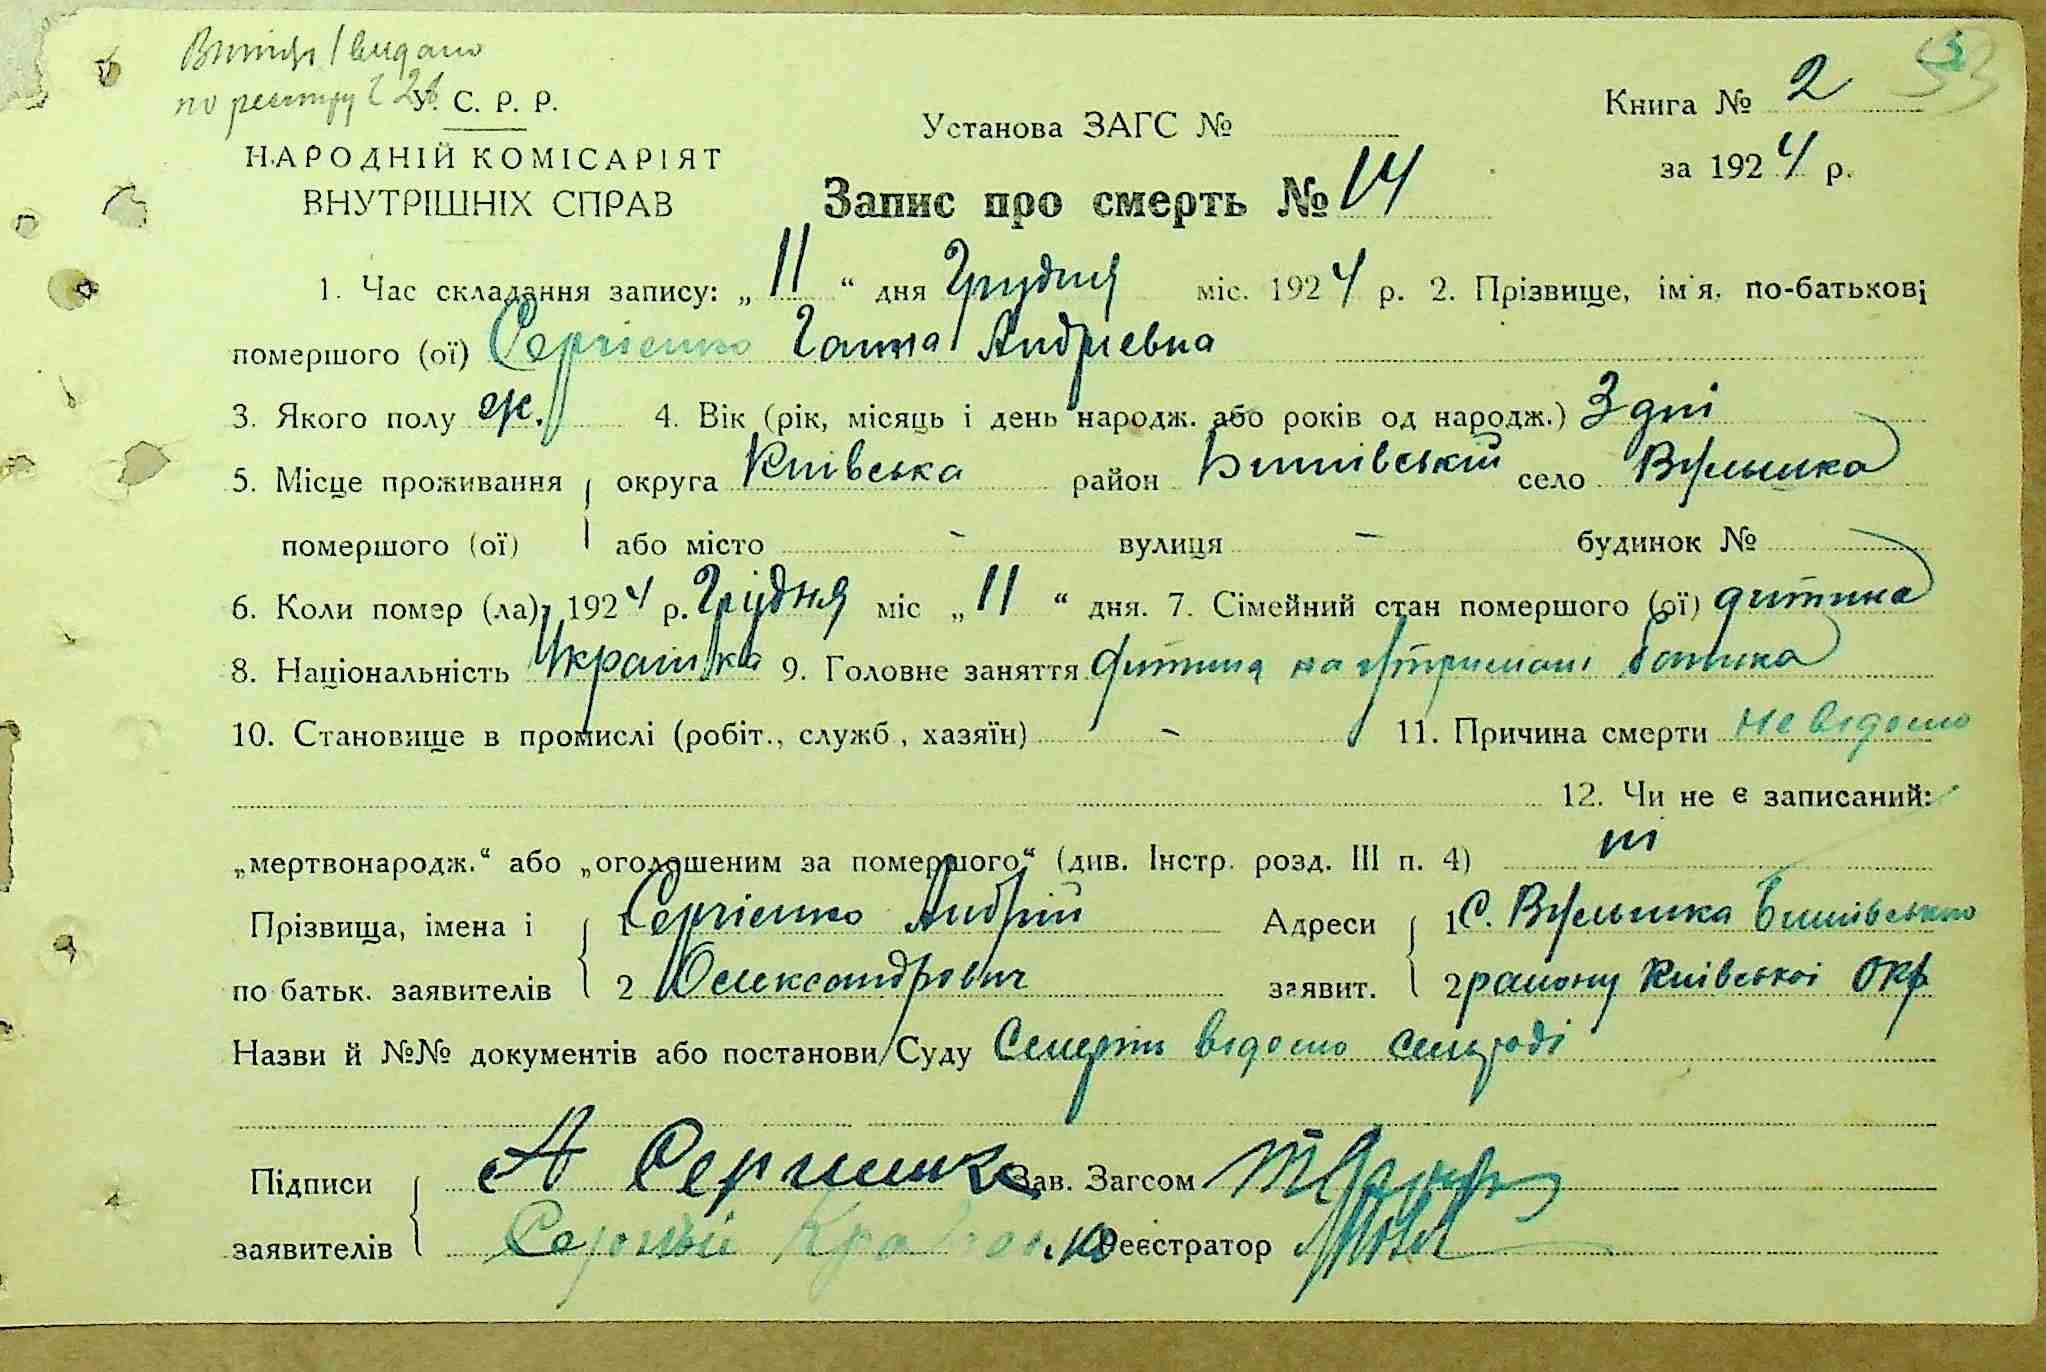 по реєстру 28
У. С. Р. Р.
НАРОДНІЙ КОМІСАРІЯТ
ВНУТРІШНІХ СПРАВ
Установа ЗАГС №
Книга № 2
за 1924 р.
Запис про смерть № 14
1. Час складання запису: „11“ дня Грудня міс. 1924 р. 2. Прізвище, ім'я, по-батькові
помершого (ої) Сергієнко Ганна Андрієвна
3. Якого полу ж. 4. Вік (рік, місяць і день народж. або років од народж.) 3 дні
5. Місце проживання округа Київська район Бишівський село Вульшка
помершого (ої) або місто - вулиця - будинок №
6. Коли помер (ла) 1924 р. Грудня міс „11“ дня. 7. Сімейний стан помершого (ої) дитина
8. Національність Українка 9. Головне заняття дитина на утримані батька
10. Становище в промислі (робіт., служб, хазяїн) - 11. Причина смерти не відомо
12. Чи не є записаний:
„мертвонародж.“ або „оголошеним за помершого“ (див. Інстр. розд. III п. 4) ні
Прізвища, імена і 1 Сергієнко Андрій Адреси 1 С. Вульшка Бишівського
по батьк. заявителів 2 Олександрович заявит. 2 району Київської окр
Назви й №№ документів або постанови Суду Смерть відомо сільраді
Підписи А Сергиенко Зав. Загсом
заявителів Реєстратор